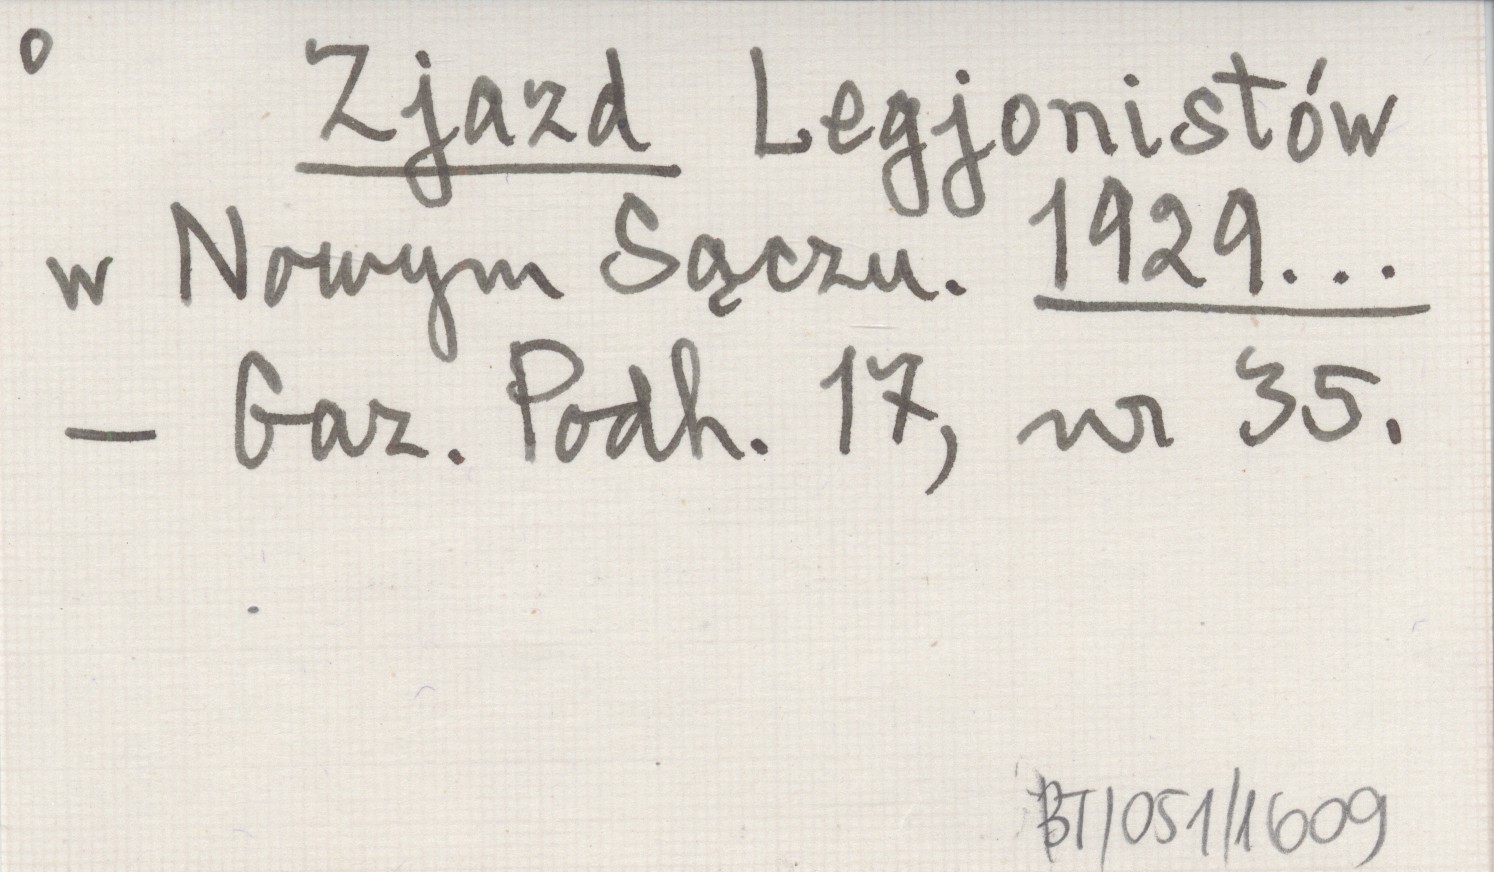 o
Zjazd Legjonistów
w Nowym Sączu. 1929...
— Gaz. Podh. 17, nr 35.
BT/051/1609